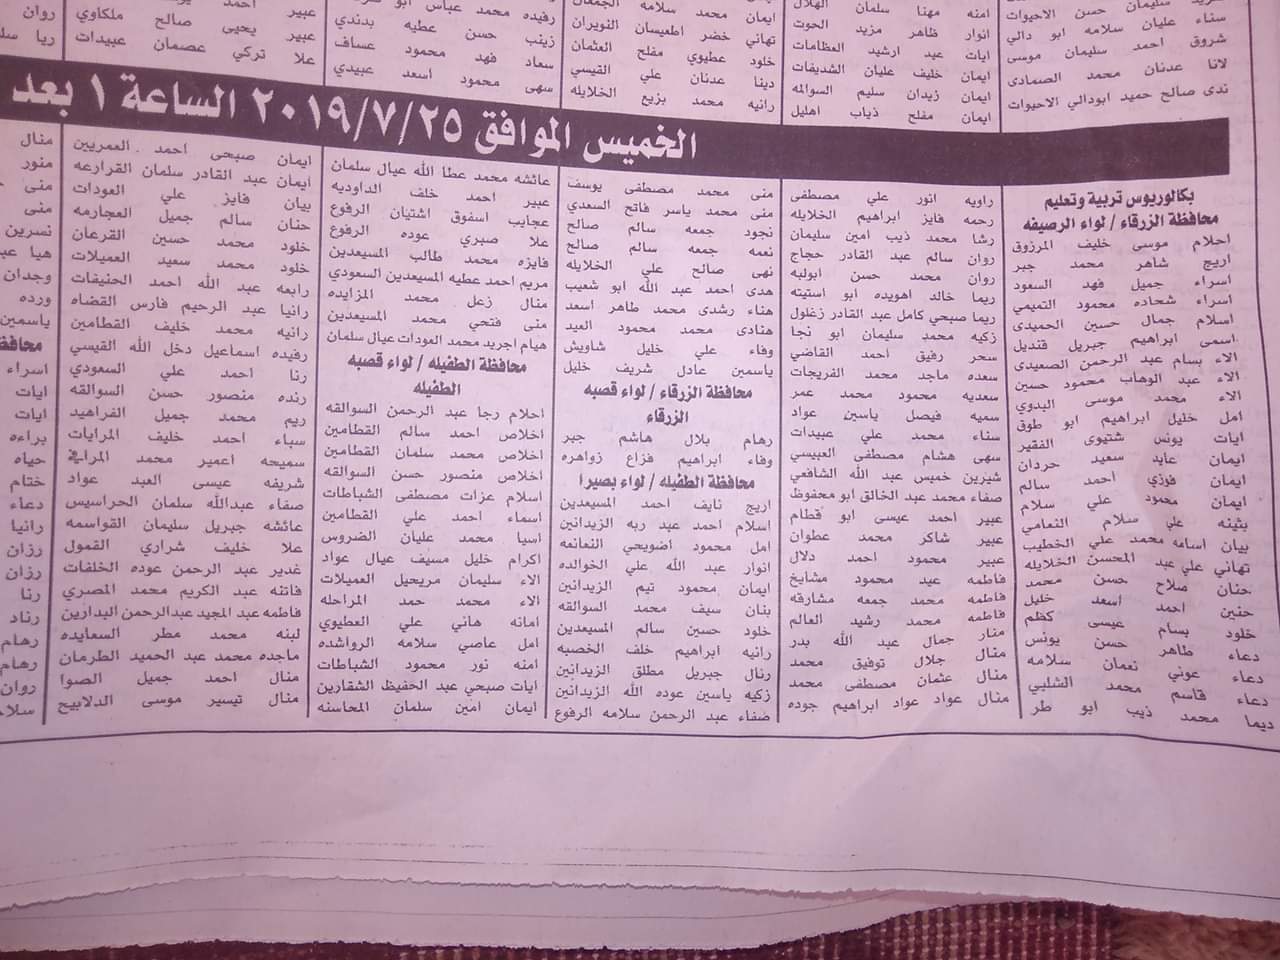 سناء عليان سلامه ابو دالي
شروق احمد سليمان موسى
لانا عدنان محمد الصمادى
ندى صالح حميد ابودالي الاحيوات
امنه مهنا سلمان الهلال
انوار ظاهر مزيد الحوت
ايات عيد ارشيد العظامات
ايمان خليف عليان الشديفات
ايمان زيدان سليم السوالمه
ايمان مفلح ذياب اهليل
ايمان محمد سلامه الجمعان
تهاني خضر اطعيسان النويران
خلود عطيوي مفلح العثمان
دينا عدنان علي القيسي
رانيه محمد بزيع الخلايله
زينب حسن عطيه بدندي
سعاد فهد محمود عساف
سهى محمود اسعد عبيدي
عبير يحيى صالح ملكاوي
علا تركي عصمان عبيدات
روان
ريا
الخميس الموافق ٢٠١٩/٧/٢٥ الساعة ١ بعد
بكالوريوس تربية وتعليم
محافظة الزرقاء / لواء الرصيفه
احلام موسى خليف المرزوق
اريج شاهر محمد جبر
اسراء جميل فهد السعود
اسراء شحاده محمود التميمي
اسلام جمال حسين الحميدي
اسمى ابراهيم جبريل قنديل
الاء بسام عبد الرحمن الصعيدي
الاء عبد الوهاب محمود حسين
الاء محمد موسى البدوي
امل خليل ابراهيم ابو طوق
ايات يونس شتيوى الفقير
ايمان عايد سعيد حردان
ايمان فوزي احمد سالم
ايمان محمود علي سلام
بثينه علي سلام النعامي
بيان اسامه محمد علي الخطيب
تهاني علي عبد المحسن الخلايله
حنان صلاح حسن محمد
حنين احمد اسعد خليل
خلود بسام عيسى كظم
دعاء طاهر حسن يونس
دعاء عوني نعمان سلامه
دعاء قاسم محمد الشلبي
ديما محمد ذيب ابو طر
راويه انور علي مصطفى
رحمه فايز ابراهيم الخلايله
رشا محمد ذيب امين سليمان
روان سالم عبد القادر حجاج
روان محمد حسن ابولبه
ريما خالد اهويده ابو استيته
ريما صبحي كامل عبد القادر زغلول
زكيه محمد سليمان ابو نجا
سحر رفيق احمد القاضي
سعده ماجد محمد الفريجات
سعديه محمود محمد عمر
سميه فيصل ياسين عواد
سناء محمد علي عبيدات
سهى هشام مصطفى العبيسي
شيرين خميس عبد الله الشافعي
صفاء محمد عبد الخالق ابو محفوظ
عبير احمد عيسى ابو قطام
عبير شاكر محمد عطوان
عبير محمود احمد دلال
فاطمه عيد محمود مشايخ
فاطمه محمد جمعه مشارقه
فاطمه محمد رشيد العالم
منار جمال عبد الله بدر
منال جلال توفيق محمد
منال عثمان مصطفى محمد
منال عواد عواد ابراهيم جوده
منى محمد مصطفى يوسف
منى محمد ياسر فاتح السعدي
نجود جمعه سالم صالح
نعمه جمعه سالم صالح
نهى صالح علي الخلايله
هدى احمد عبد الله ابو شعيب
هناء رشدي محمد طاهر اسعد
هنادى محمد محمود العيد
وفاء علي خليل شاويش
ياسمين عادل شريف خليل
محافظة الزرقاء / لواء قصبه
الزرقاء
رهام بلال هاشم جبر
وفاء ابراهيم فزاع زواهره
محافظة الطفيله / لواء بصيرا
اريج نايف احمد المسيعدين
اسلام احمد عبد ربه الزيدانين
امل محمود اضويحي النعانعه
انوار عبد الله علي الخوالده
ايمان محمود تيم الزيدانين
بنان سيف محمد السوالقه
خلود حسين سالم المسيعدين
رانيه ابراهيم خلف الخصبه
رنال جبريل مطلق الزيدانين
زكيه ياسين عوده الله الزيدانين
ضفاء عبد الرحمن سلامه الرفوع
عائشه محمد عطا الله عيال سلمان
عبير احمد خلف الداوديه
عجايب اسفوق اشتيان الرفوع
علا صبري عوده الرفوع
فايزه محمد طالب المسيعدين
مريم احمد عطيه المسيعدين السعودي
منال زعل محمد المزايده
منى فتحي محمد المسيعدين
هيام اجريد محمد العودات عيال سلمان
محافظة الطفيله / لواء قصبه
الطفيله
احلام رجا عبد الرحمن السوالقه
اخلاص احمد سالم القطامين
اخلاص محمد سلمان القطامين
اخلاص منصور حسن السوالقه
اسلام عزات مصطفى الشباطات
اسماء احمد علي القطامين
اسيا محمد عليان الضروس
اكرام خليل مسيف عيال عواد
الاء سليمان مريحيل العميلات
الاء محمد حمد المراحله
امانه هاني علي العطيوي
امل عاصي سلامه الرواشده
امنه نور محمود الشباطات
ايات صبحي عبد الحفيظ الشقارين
ايمان امين سلمان المحاسنه
ايمان صبحى احمد العمريين
ايمان عبد القادر سلمان القرارعه
بيان فايز علي العودات
حنان سالم جميل العجارمه
خلود محمد حسين القرعان
خلود محمد سعيد العميلات
رابعه عبد الله احمد الحنيفات
رانيا عبد الرحيم فارس القضاه
رانيه محمد خليف القطامين
رفيده اسماعيل دخل الله القيسي
رنا احمد علي السعودي
رنده منصور حسن السوالقه
ريم محمد جميل الفراهيد
سباء احمد خليف المرايات
سميحه اعمير محمد المرافي
شريفه عيسى العبد عواد
صفاء عبدالله سلمان الحراسيس
عائشه جبريل سليمان القواسمه
علا خليف شراري القمول
غدير عبد الرحمن عوده الخلفات
فاتنه عبد الكريم محمد المصري
فاطمه عبد المجيد عبدالرحمن البدارين
لبنه محمد مطر السعايده
ماجده محمد عبد الحميد الطرمان
منال احمد جميل الصوا
منال تيسير موسى الدلابيح
منال
منور
منى
منى
نسرين
هيا
وجدان
ورده
ياسمين
اسراء
ايات
ايات
براءه
حياه
ختام
دعاء
رانيا
رزان
رزان
رنا
رناد
رهام
رهام
روان